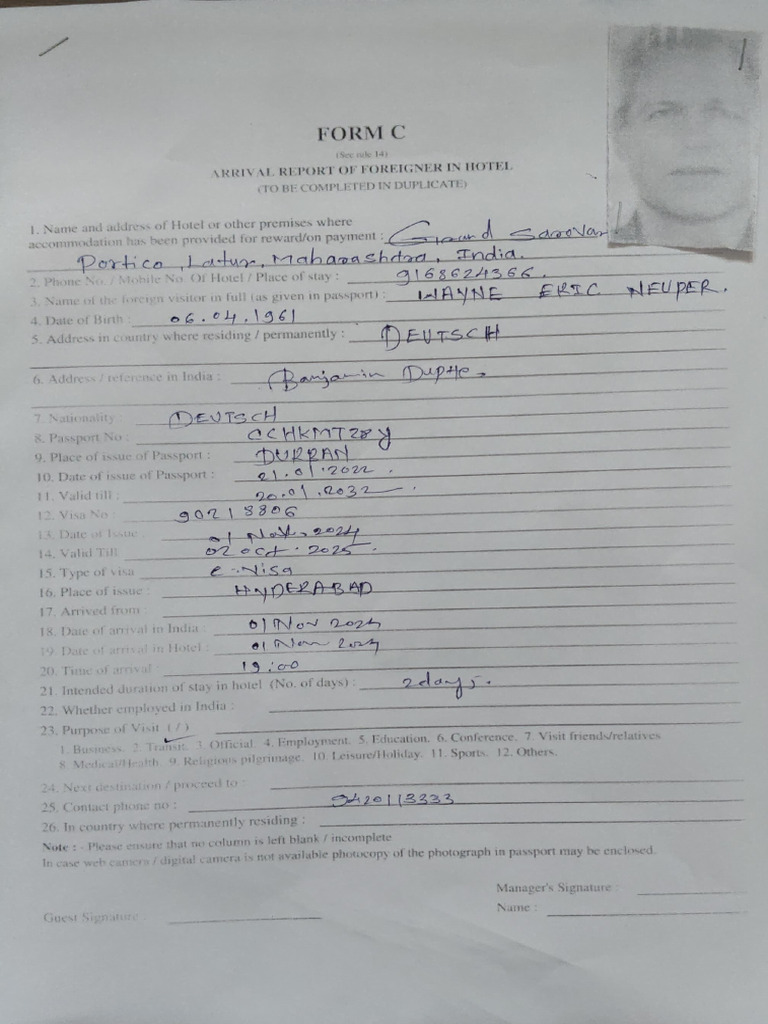 FORM C
(See rule 14)
ARRIVAL REPORT OF FOREIGNER IN HOTEL
(TO BE COMPLETED IN DUPLICATE)
1. Name and address of Hotel or other premises where
accommodation has been provided for reward/on payment : Grand Sarovar
Portico, Latur, Maharashtra, India.
2. Phone No. / Mobile No. Of Hotel / Place of stay : 9168624366.
3. Name of the foreign visitor in full (as given in passport) : WAYNE ERIC NEUPER.
4. Date of Birth : 06.04.1961
5. Address in country where residing / permanently : DEUTSCH
6. Address / reference in India : Banjamin Dupte.
7. Nationality : DEUTSCH
8. Passport No : CCHKMTZ8Y
9. Place of issue of Passport : DURBAN
10. Date of issue of Passport : 21.01.2022.
11. Valid till : 20.01.2032.
12. Visa No : 902138806
13. Date of Issue : 01 Nov. 2024
14. Valid Till 02 oct. 2025.
15. Type of visa e-Visa
16. Place of issue : HYDERABAD
17. Arrived from :
18. Date of arrival in India : 01 Nov 2024
19. Date of arrival in Hotel : 01 Nov 2024
20. Time of arrival : 19:00
21. Intended duration of stay in hotel (No. of days) : 2 days.
22. Whether employed in India :
23. Purpose of Visit (/)
1. Business. 2. Transit. 3. Official. 4. Employment. 5. Education. 6. Conference. 7. Visit friends/relatives
8. Medical/Health. 9. Religious pilgrimage. 10. Leisure/Holiday. 11. Sports. 12. Others.
24. Next destination / proceed to :
25. Contact phone no : 9420113333
26. In country where permanently residing :
Note : - Please ensure that no column is left blank / incomplete
In case web camera / digital camera is not available photocopy of the photograph in passport may be enclosed.
Manager's Signature :
Name :
Guest Signature :